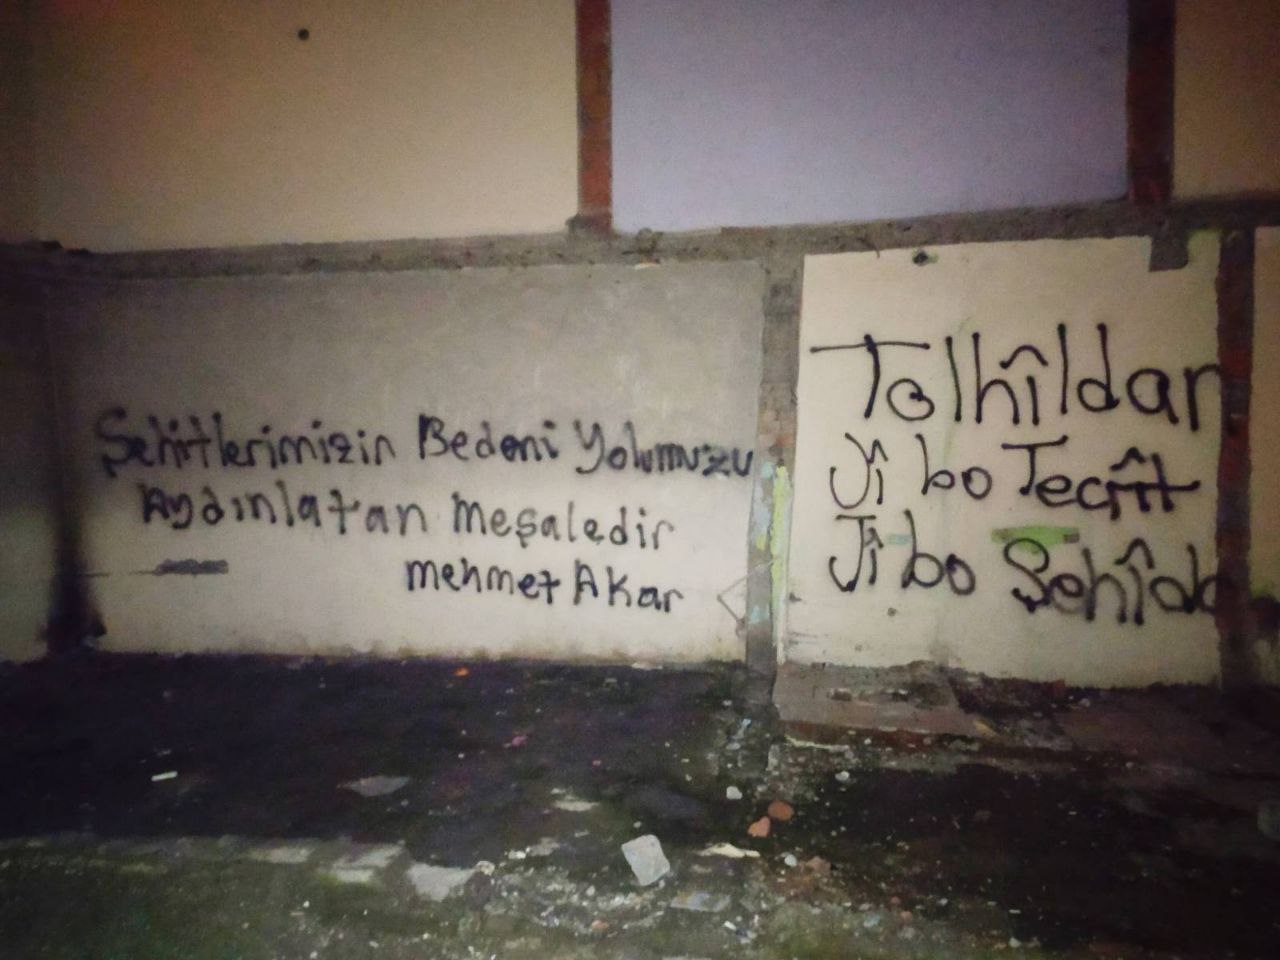 Şehitlerimizin Bedeni Yolumuzu
Aydınlatan Meşaledir
Mehmet Akar
Tolhîldan
Jî bo Tecrît
Jî bo Şehîda